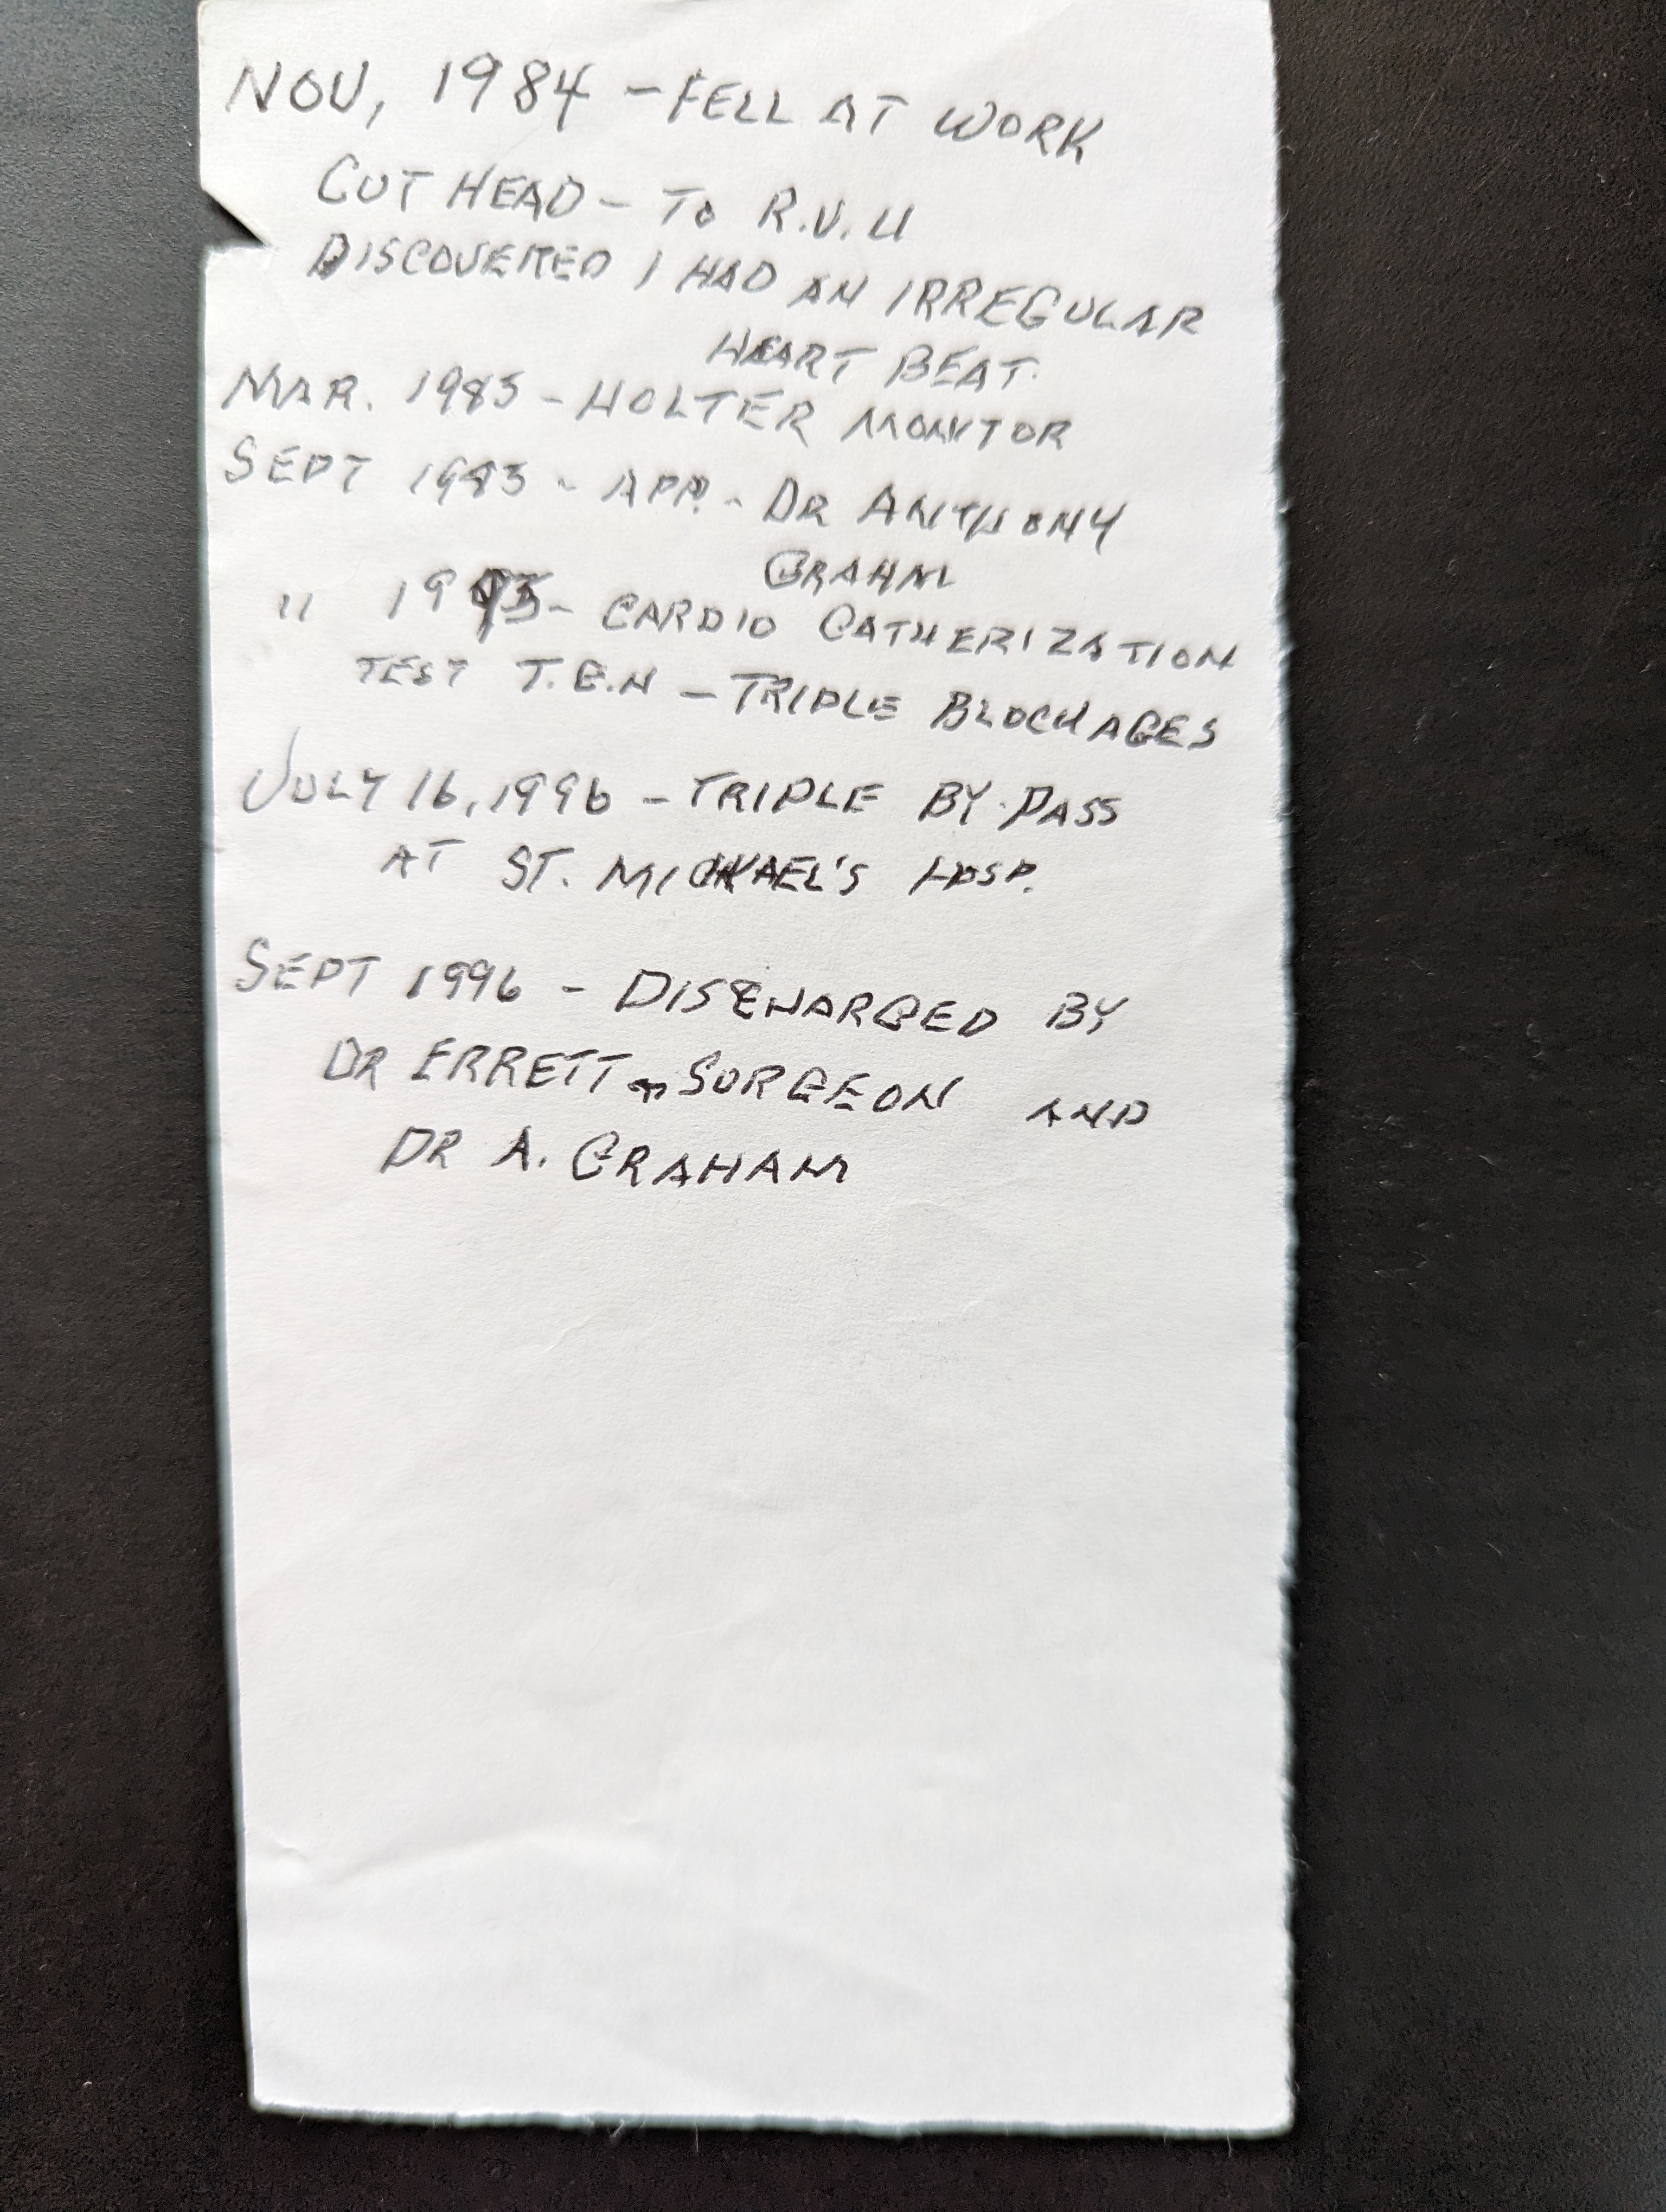 NOV, 1984 - FELL AT WORK
CUT HEAD - TO R.V.H
DISCOVERED I HAD AN IRREGULAR
HEART BEAT.
MAR. 1985 - HOLTER MONITOR
SEPT - APP. - DR ANTHONY
GRAHM
" - CARDIO CATHERIZATION
TEST T.G.H - TRIPLE BLOCKAGES
JULY 16, 1996 - TRIPLE BY-PASS
AT ST. MICHAEL'S HOSP.
SEPT 1996 - DISCHARGED BY
DR ERRETT SURGEON AND
DR A. GRAHAM